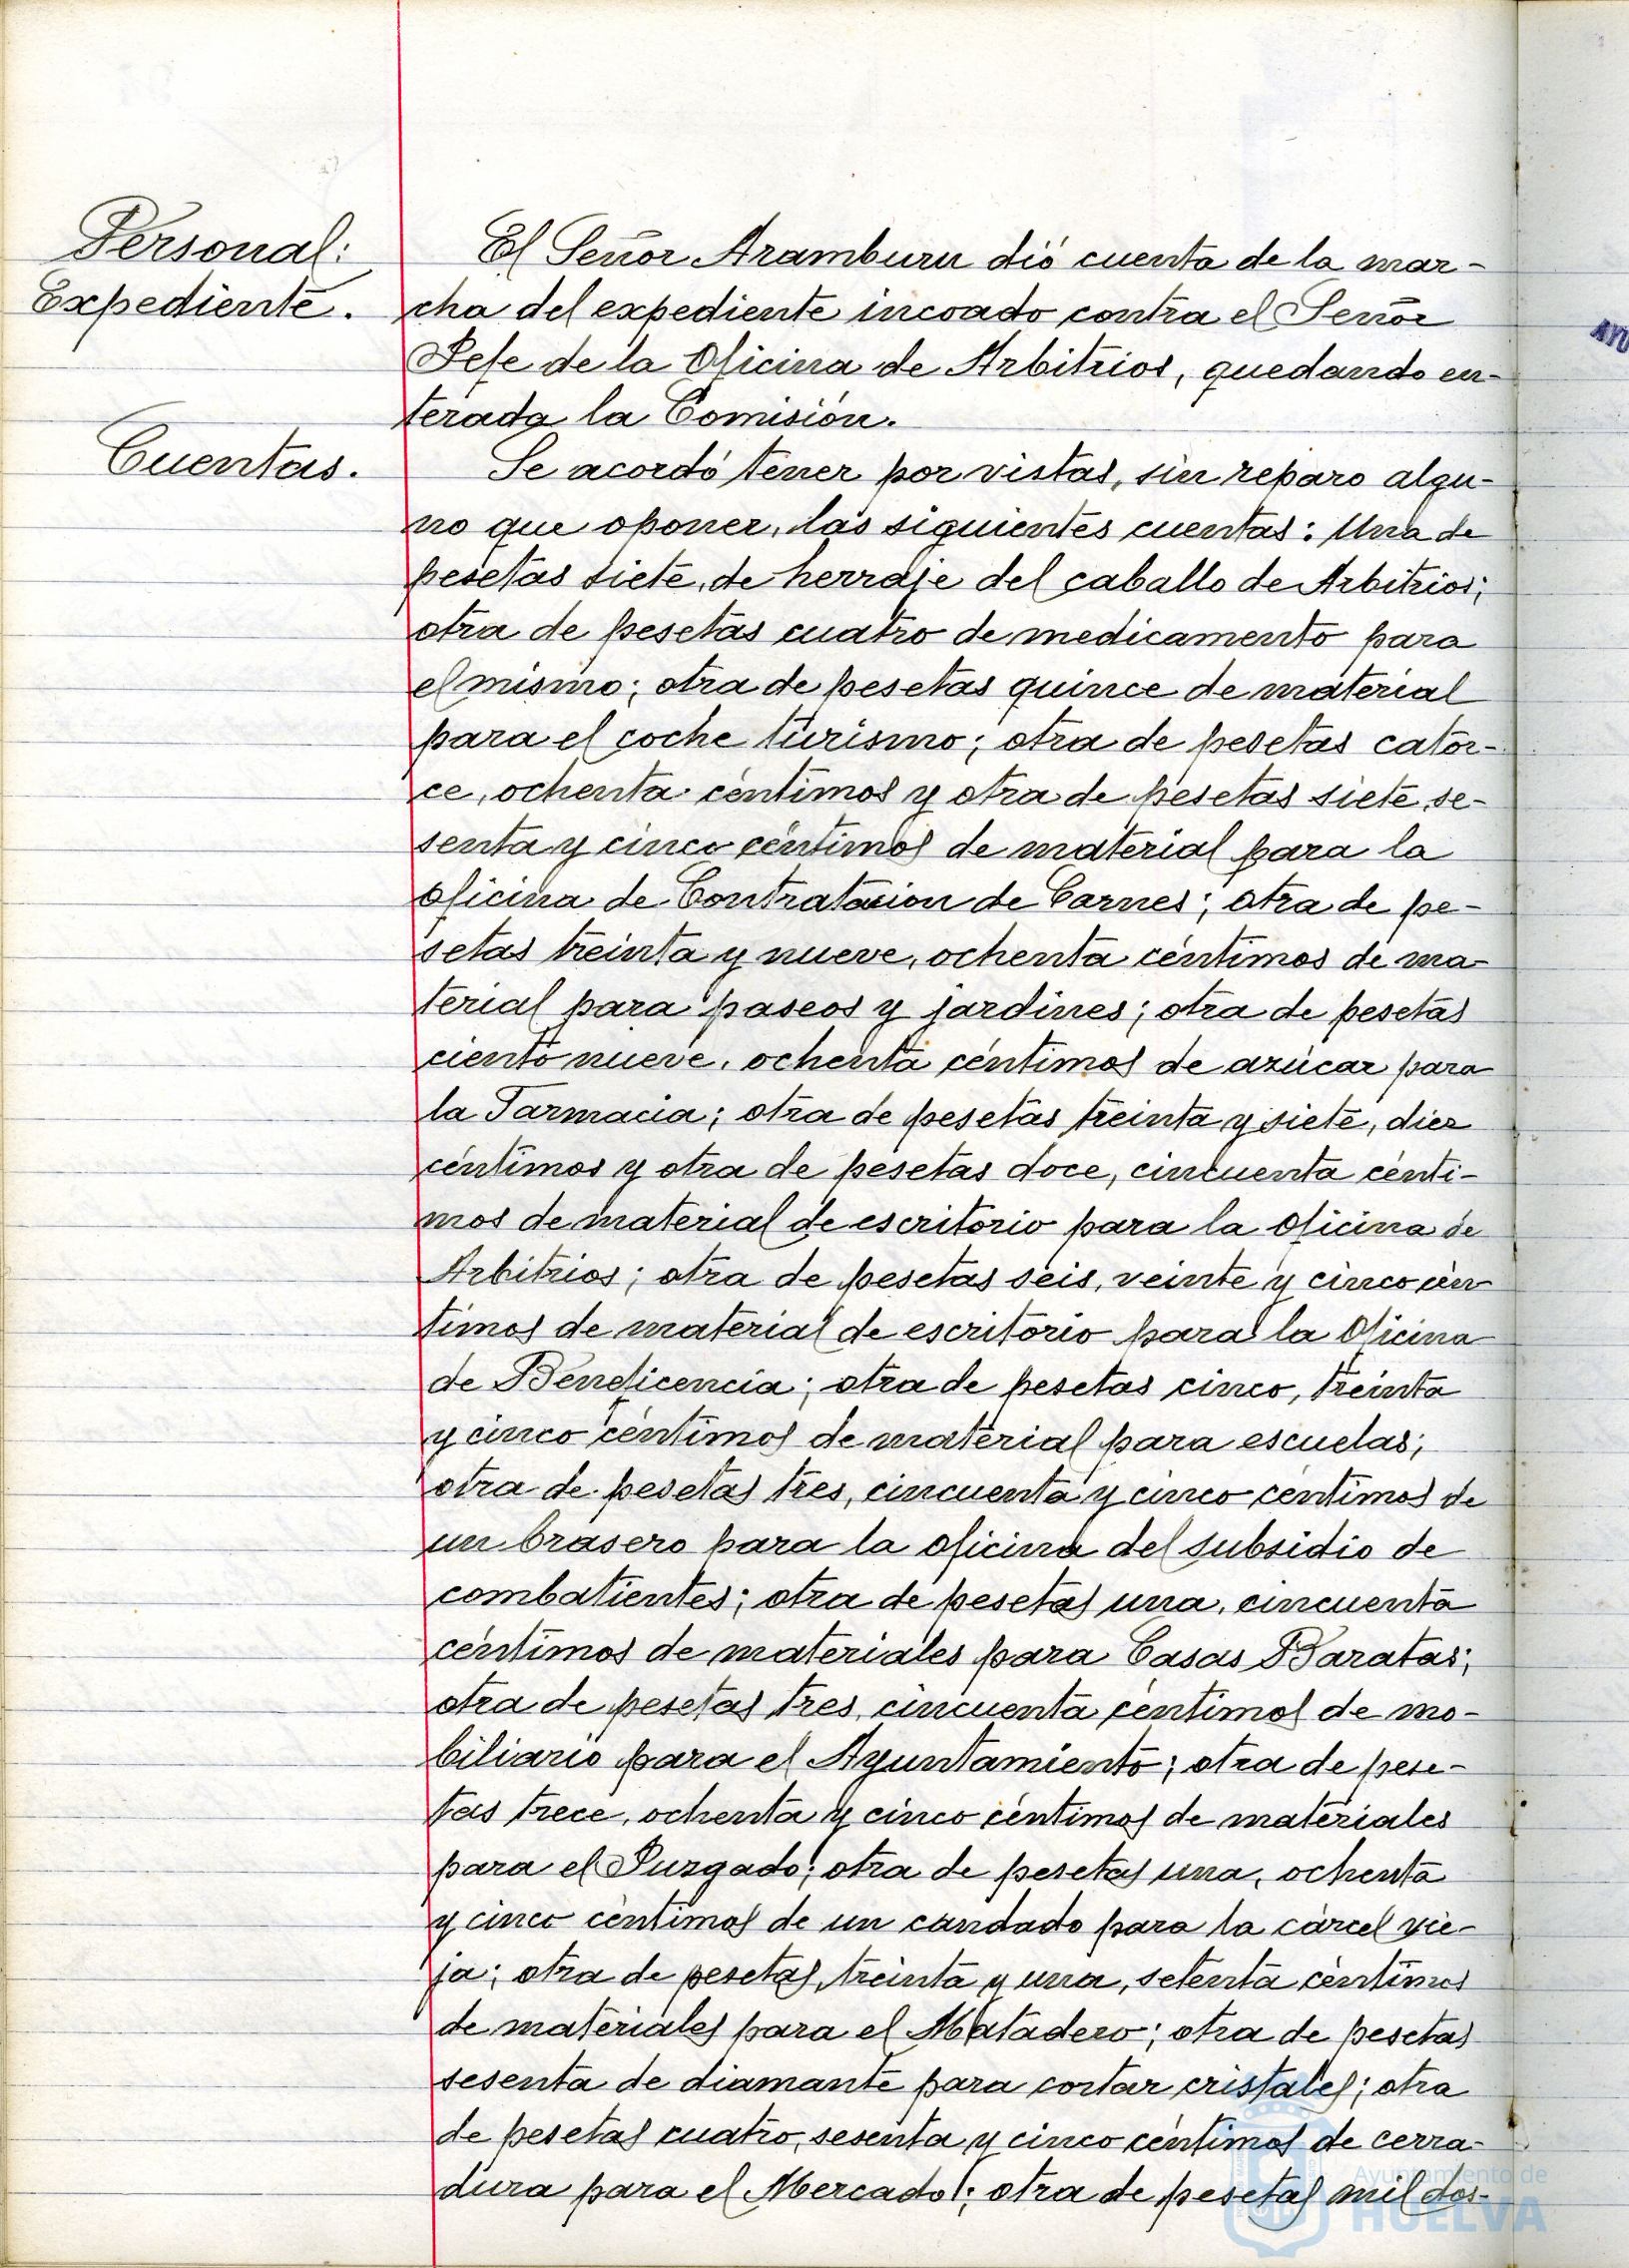 Personal:
Expediente.
El Señor Aramburu dió cuenta de la mar-
cha del expediente incoado contra el Señor
Jefe de la Oficina de Arbitrios, quedando en-
terada la Comisión.
Cuentas.
Se acordó tener por vistas, sin reparo algu-
no que oponer, las siguientes cuentas: Una de
pesetas siete, de herraje del caballo de Arbitrios;
otra de pesetas cuatro de medicamento para
el mismo; otra de pesetas quince de material
para el coche turismo; otra de pesetas cator-
ce, ochenta céntimos y otra de pesetas siete, se-
senta y cinco céntimos de material para la
oficina de Contratacion de Carnes; otra de pe-
setas treinta y nueve, ochenta céntimos de ma-
terial para paseos y jardines; otra de pesetas
ciento nueve, ochenta céntimos de azúcar para
la Farmacia; otra de pesetas treinta y siete, diez
céntimos y otra de pesetas doce, cincuenta cénti-
mos de material de escritorio para la Oficina de
Arbitrios; otra de pesetas seis, veinte y cinco cén
timos de material de escritorio para la Oficina
de Beneficencia; otra de pesetas cinco, treinta
y cinco céntimos de material para escuelas;
otra de pesetas tres, cincuenta y cinco centimos de
un brasero para la oficina del subsidio de
combatientes; otra de pesetas una, cincuenta
céntimos de materiales para Casas Baratas;
otra de pesetas tres, cincuenta céntimos de mo-
biliario para el Ayuntamiento; otra de pese-
tas trece, ochenta y cinco céntimos de materiales
para el Juzgado; otra de pesetas una, ochenta
y cinco céntimos de un candado para la cárcel vie-
ja; otra de pesetas, treinta y una, setenta céntimos
de materiales para el Matadero; otra de pesetas
sesenta de diamante para cortar cristales; otra
de pesetas cuatro, sesenta y cinco céntimos de cerra-
dura para el Mercado; otra de pesetas mil dos-
Ayuntamiento de
HUELVA
AYU